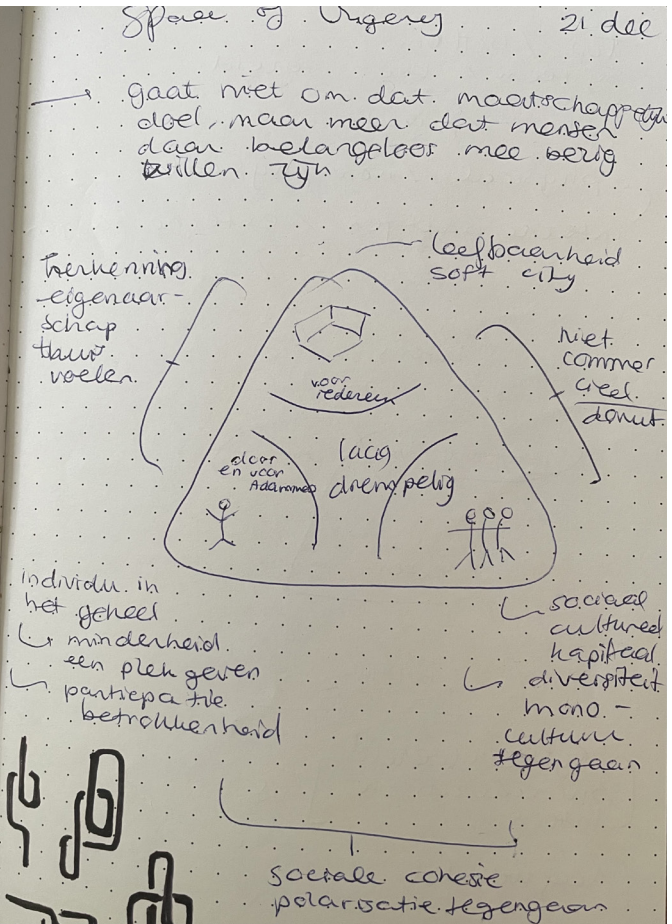 Space of Urgency 21 dec
→ gaat niet om dat maatschappelijk
doel, maar meer dat mensen
daar belangeloos mee bezig
willen zijn
leefbaarheid
soft city
herkenning
eigenaar-
schap
thuis
voelen
niet
commer
cieel
donut
voor
iedereen
laag
drempelig
door
en voor
Adammers
individu in
het geheel
↳ minderheid
een plek geven
↳ participatie
betrokkenheid
↳ sociaal
cultureel
kapitaal
↳ diversiteit
mono-
cultuur
tegengaan
sociale cohesie
polarisatie tegengaan